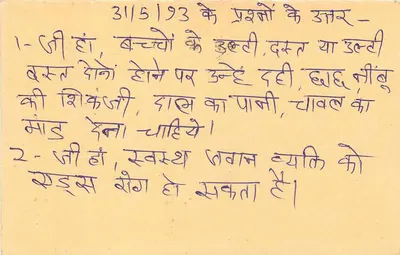 31/5/93 के प्रश्नों के उत्तर -
1- जी हां, बच्चों के उल्टी, दस्त या उल्टी
दस्त दोनो होने पर उन्हें दही, छाछ, नींबू
की शिकंजी, दाल का पानी, चावल का
मांड देना चाहिये।
2- जी हां, स्वस्थ जवान व्यक्ति को
एड्स रोग हो सकता है।